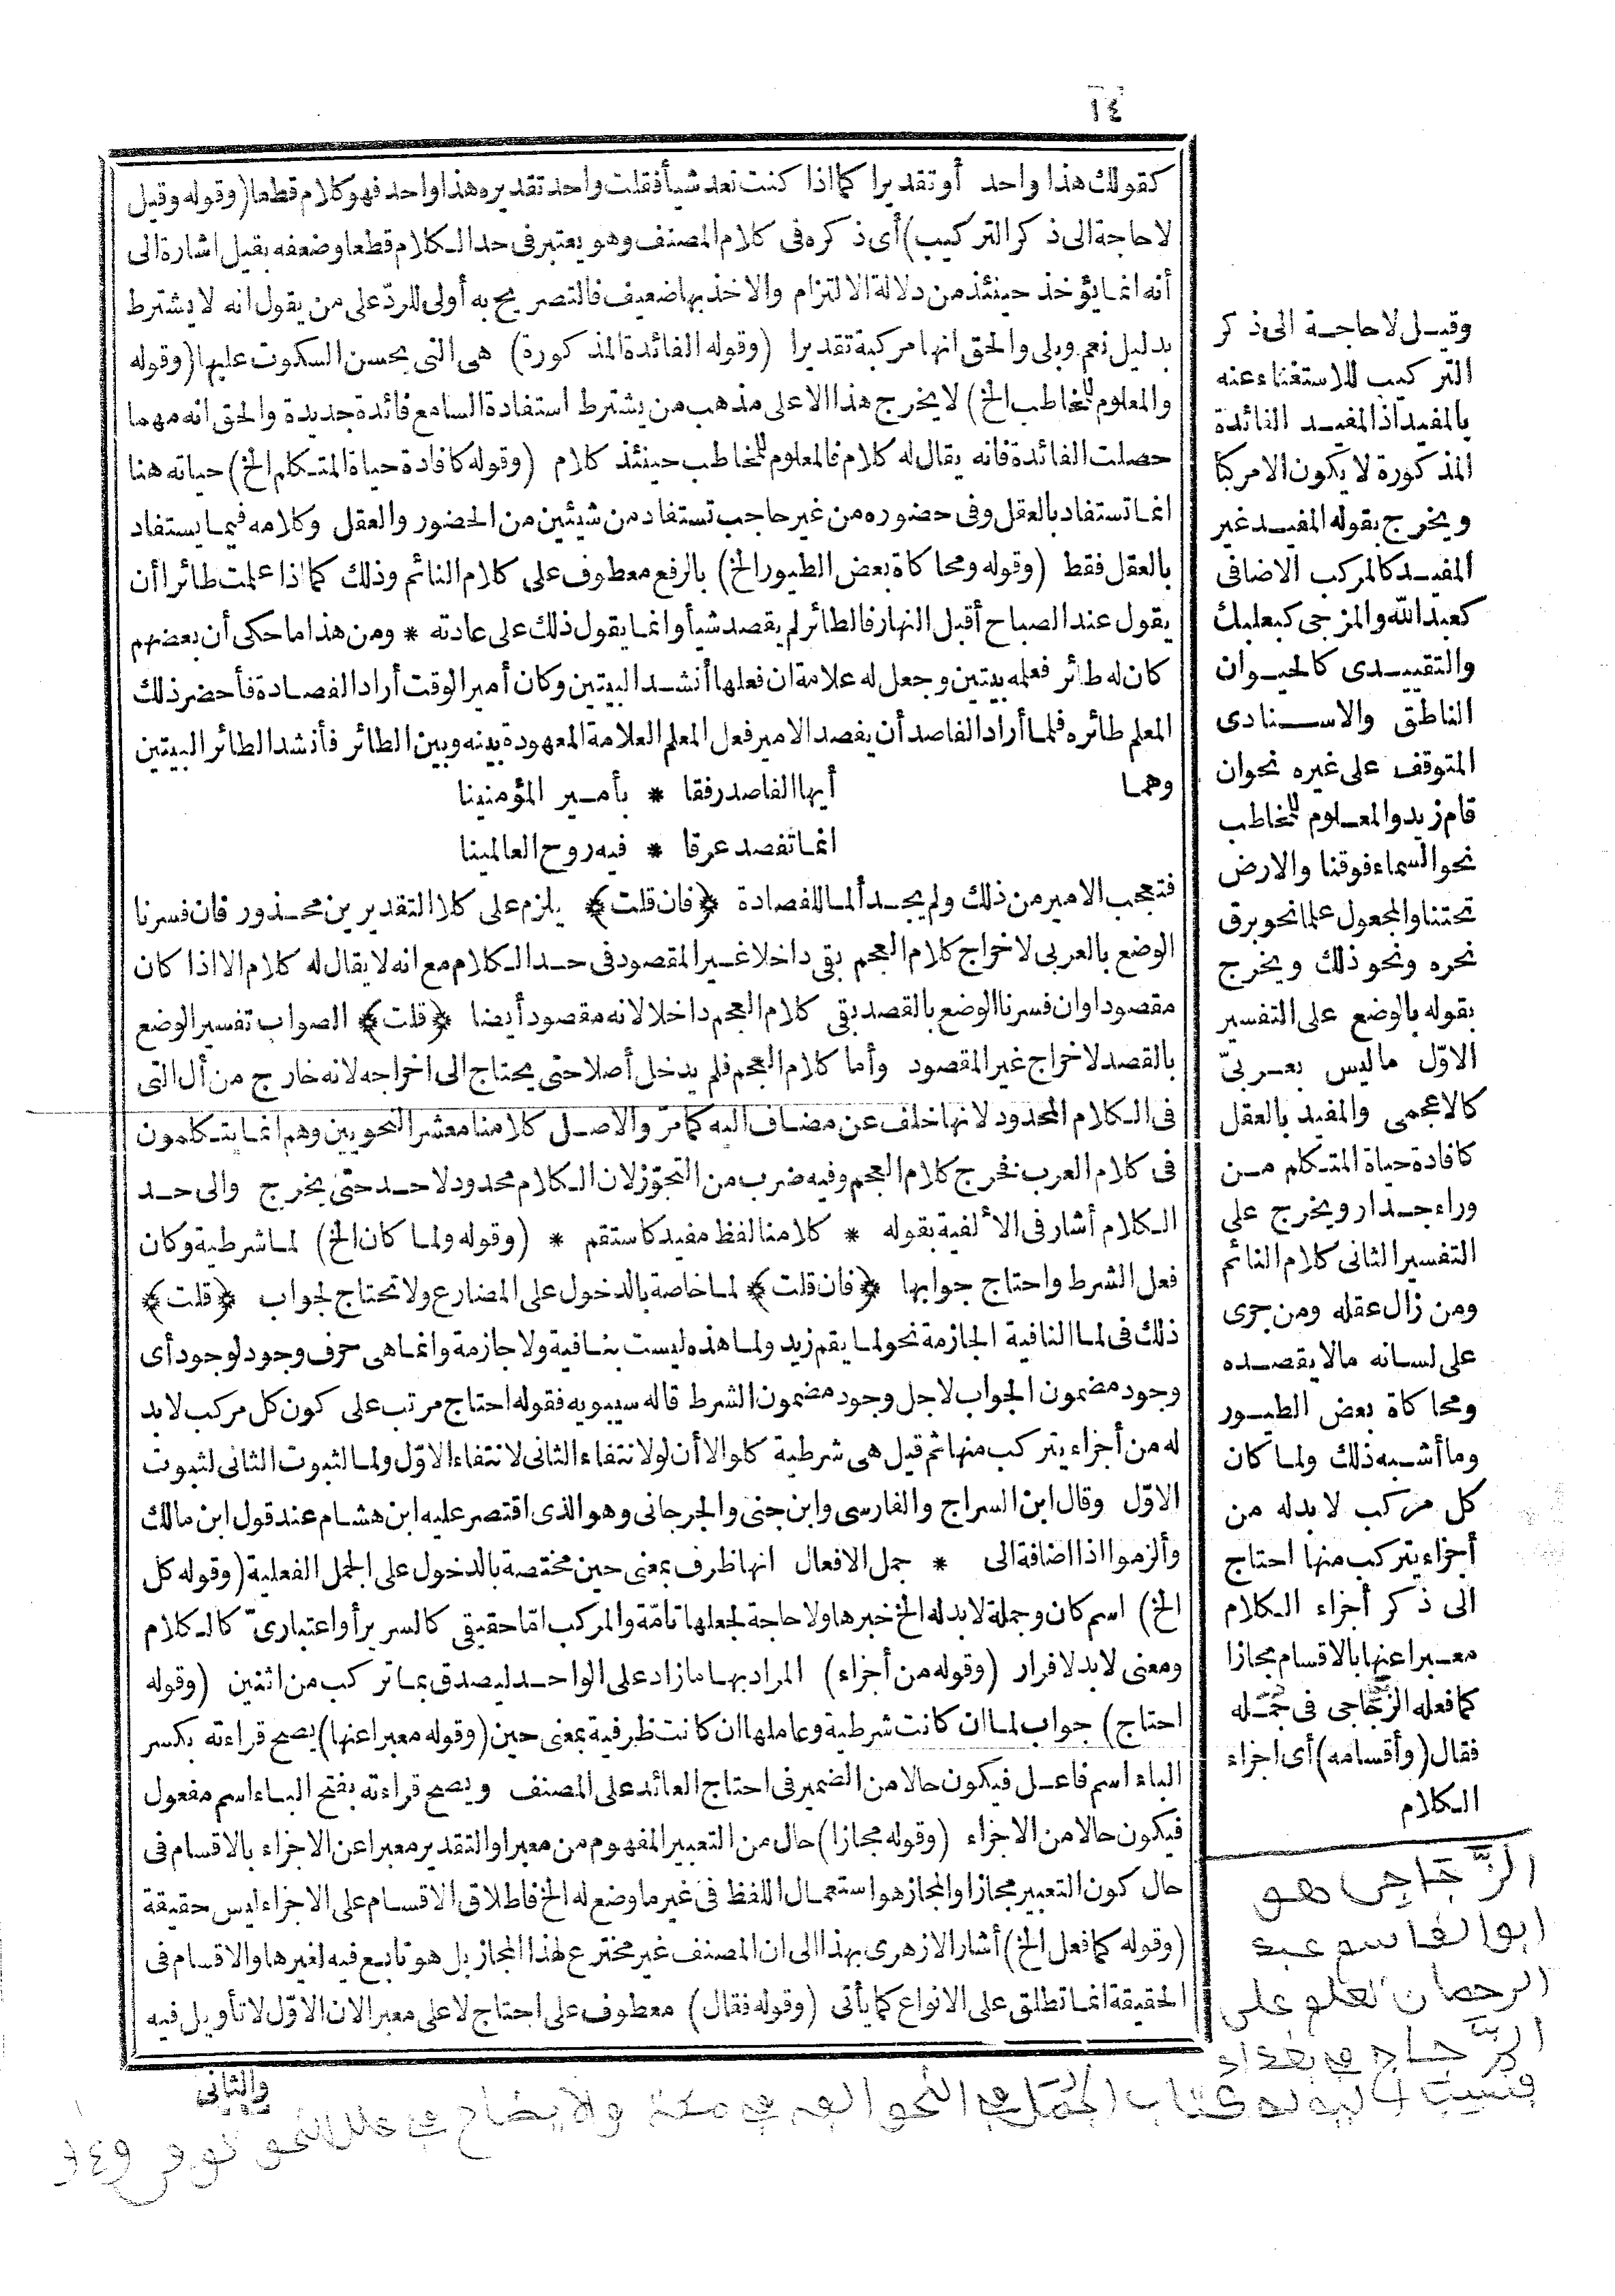 ١٤
كقولك هذا واحد أو تقديرا كما اذا كنت تعد شيأ فقلت واحد تقديره هذا واحد فهو كلام قطعا (وقوله وقيل
لا حاجة الى ذكر التركيب) أى ذكره فى كلام المصنف وهو يعتبر فى حد الكلام قطعا وضعفه بقيل اشارة الى
أنه انما يؤخذ حينئذ من دلالة الالتزام والاخذ بها ضعيف فالتصريح به أولى للردّ على من يقول انه لا يشترط
بدليل نعم وبلى والحق انها مركبة تقديرا (وقوله الفائدة المذكورة) هى التى يحسن السكوت عليها (وقوله
والمعلوم للمخاطب الخ) لا يخرج هذا الا على مذهب من يشترط استفادة السامع فائدة جديدة والحق انه مهما
حصلت الفائدة فانه يقال له كلام فالمعلوم للمخاطب حينئذ كلام (وقوله كافادة حياة المتكلم الخ) حياته هنا
انما تستفاد بالعقل وفى حضوره من غير حاجب تستفاد من شيئين من الحضور والعقل وكلامه فيما يستفاد
بالعقل فقط (وقوله ومحاكاة بعض الطيور الخ) بالرفع معطوف على كلام النائم وذلك كما اذا علمت طائرا أن
يقول عند الصباح أقبل النهار فالطائر لم يقصد شيأ وانما يقول ذلك على عادته * ومن هذا ما حكى أن بعضهم
كان له طائر فعلمه بيتين وجعل له علامة ان فعلها أنشد البيتين وكان أمير الوقت أراد الفصادة فأحضر ذلك
المعلم طائره فلما أراد الفاصد أن يفصد الامير فعل المعلم العلامة المعهودة بينه وبين الطائر فأنشد الطائر البيتين
وهما أيها الفاصد رفقا * بأمير المؤمنينا
انما تفصد عرقا * فيه روح العالمينا
فتعجب الامير من ذلك ولم يجد ألما للفصادة ﴿فان قلت﴾ يلزم على كلا التقديرين محذور فان فسرنا
الوضع بالعربى لاخراج كلام العجم بقى داخلا غير المقصود فى حد الكلام مع انه لا يقال له كلام الا اذا كان
مقصودا وان فسرنا الوضع بالقصد بقى كلام العجم داخلا لانه مقصود أيضا ﴿قلت﴾ الصواب تفسير الوضع
بالقصد لاخراج غير المقصود وأما كلام العجم فلم يدخل أصلا حتى يحتاج الى اخراجه لانه خارج من أل التى
فى الكلام المحدود لانها خلف عن مضاف اليه كما مرّ والاصل كلامنا معشر النحويين وهم انما يتكلمون
فى كلام العرب فخرج كلام العجم وفيه ضرب من التجوّز لان الكلام محدود لا حد حتى يخرج والى حد
الكلام أشار فى الألفية بقوله * كلامنا لفظ مفيد كاستقم * (وقوله ولما كان الخ) لما شرطية وكان
فعل الشرط واحتاج جوابها ﴿فان قلت﴾ لما خاصة بالدخول على المضارع ولا تحتاج لجواب ﴿قلت﴾
ذلك فى لما النافية الجازمة نحو لما يقم زيد ولما هذه ليست بنافية ولا جازمة وانما هى حرف وجود لوجود أى
وجود مضمون الجواب لاجل وجود مضمون الشرط قاله سيبويه فقوله احتاج مرتب على كون كل مركب لابد
له من أجزاء يتركب منها ثم قيل هى شرطية كلو الا أن لو لانتفاء الثانى لانتفاء الاوّل ولما لثبوت الثانى لثبوت
الاوّل وقال ابن السراج والفارسى وابن جنى والجرجانى وهو الذى اقتصر عليه ابن هشام عند قول ابن مالك
وألزموا اذا اضافة الى * جمل الافعال انها ظرف بمعنى حين مختصة بالدخول على الجمل الفعلية (وقوله كل
الخ) اسم كان وجملة لابد له الخ خبرها ولا حاجة لجعلها تامّة والمركب امّا حقيقى كالسرير أو اعتبارىّ كالكلام
ومعنى لابد لا فرار (وقوله من أجزاء) المراد بها ما زاد على الواحد ليصدق بما تركب من اثنين (وقوله
احتاج) جواب لما ان كانت شرطية وعاملها ان كانت ظرفية بمعنى حين (وقوله معبرا عنها) يصح قراءته بكسر
الباء اسم فاعل فيكون حالا من الضمير فى احتاج العائد على المصنف ويصح قراءته بفتح الباء اسم مفعول
فيكون حالا من الاجزاء (وقوله مجازا) حال من التعبير المفهوم من معبرا والتقدير معبرا عن الاجزاء بالاقسام فى
حال كون التعبير مجازا والمجاز هو استعمال اللفظ فى غير ما وضع له الخ فاطلاق الاقسام على الاجزاء ليس حقيقة
(وقوله كما فعل الخ) أشار الازهرى بهذا الى ان المصنف غير مخترع لهذا المجاز بل هو تابع فيه لغيرها والاقسام فى
الحقيقة انما تطلق على الانواع كما يأتى (وقوله فقال) معطوف على احتاج لا على معبرا لان الاوّل لا تأويل فيه
والثانى
وقيل لا حاجة الى ذكر
التركيب للاستغناء عنه
بالمفيد اذ المفيد الفائدة
المذكورة لا يكون الا مركبا
ويخرج بقوله المفيد غير
المفيد كالمركب الاضافى
كعبد الله والمزجى كبعلبك
والتقييدى كالحيوان
الناطق والاسنادى
المتوقف على غيره نحو ان
قام زيد والمعلوم للمخاطب
نحو السماء فوقنا والارض
تحتنا والمجعول علما نحو برق
نحره ونحو ذلك ويخرج
بقوله بالوضع على التفسير
الاوّل ما ليس بعربىّ
كالاعجمى والمفيد بالعقل
كافادة حياة المتكلم من
وراء جدار ويخرج على
التفسير الثانى كلام النائم
ومن زال عقله ومن جرى
على لسانه ما لا يقصده
ومحاكاة بعض الطيور
وما أشبه ذلك ولما كان
كل مركب لابد له من
أجزاء يتركب منها احتاج
الى ذكر أجزاء الكلام
معبرا عنها بالاقسام مجازا
كما فعله الزجّاجى فى جمله
فقال (وأقسامه) أى اجزاء
الكلام
الزَّجّاجي هو
ابو القاسم عبد
الرحمان تعلم على
الزَّجّاج في بغداد
كتاب الجُمَل في النحو في مكة والايضاح في علل النحو